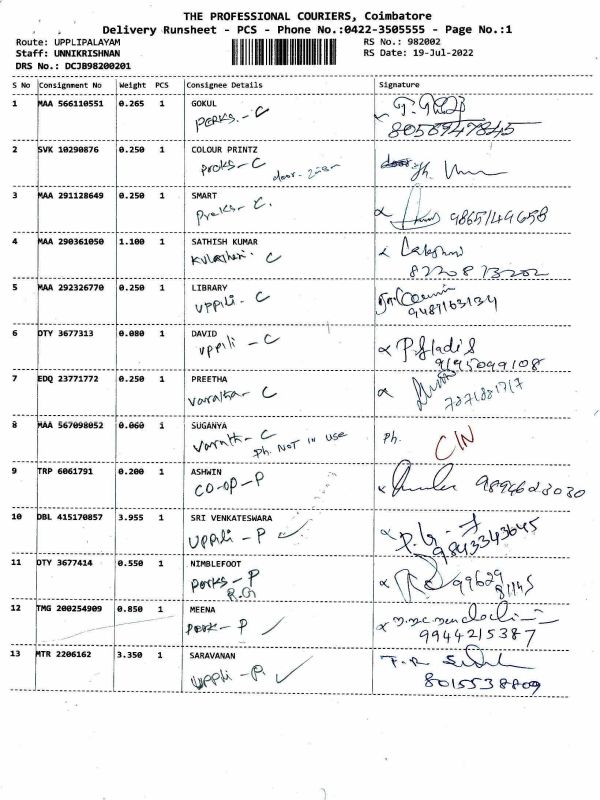 THE PROFESSIONAL COURIERS, Coimbatore
Delivery Runsheet - PCS - Phone No.:0422-3505555 - Page No.:1
Route: UPPLIPALAYAM RS No.: 982002
Staff: UNNIKRISHNAN RS Date: 19-Jul-2022
DRS No.: DCJB98200201
S No Consignment No Weight PCS Consignee Details Signature
1 MAA 566110551 0.265 1 GOKUL
PERKS - C
8058947845
2 SVK 10290876 0.250 1 COLOUR PRINTZ
Proks - C
door
3 MAA 291128649 0.250 1 SMART
Preks - C. 9865149658
4 MAA 290361050 1.100 1 SATHISH KUMAR
C Lakshmi
8220873202
5 MAA 292326770 0.250 1 LIBRARY
uppili - C
9487163134
6 DTY 3677313 0.080 1 DAVID
uppili - C
9195099108
7 EDQ 23771772 0.250 1 PREETHA
- C
7871881717
8 MAA 567098052 0.060 1 SUGANYA
Varath - C Ph.
Ph. NOT IN USE C/N
9 TRP 6061791 0.200 1 ASHWIN
CO-OP - P 9894623030
10 DBL 415170857 3.955 1 SRI VENKATESWARA
Uppili - P
9843343645
11 DTY 3677414 0.550 1 NIMBLEFOOT
Perks - P 99629
R.G 81145
12 TMG 200254909 0.850 1 MEENA
Perk - P
9944215387
13 MTR 2206162 3.350 1 SARAVANAN
Uppili - P
8015538809